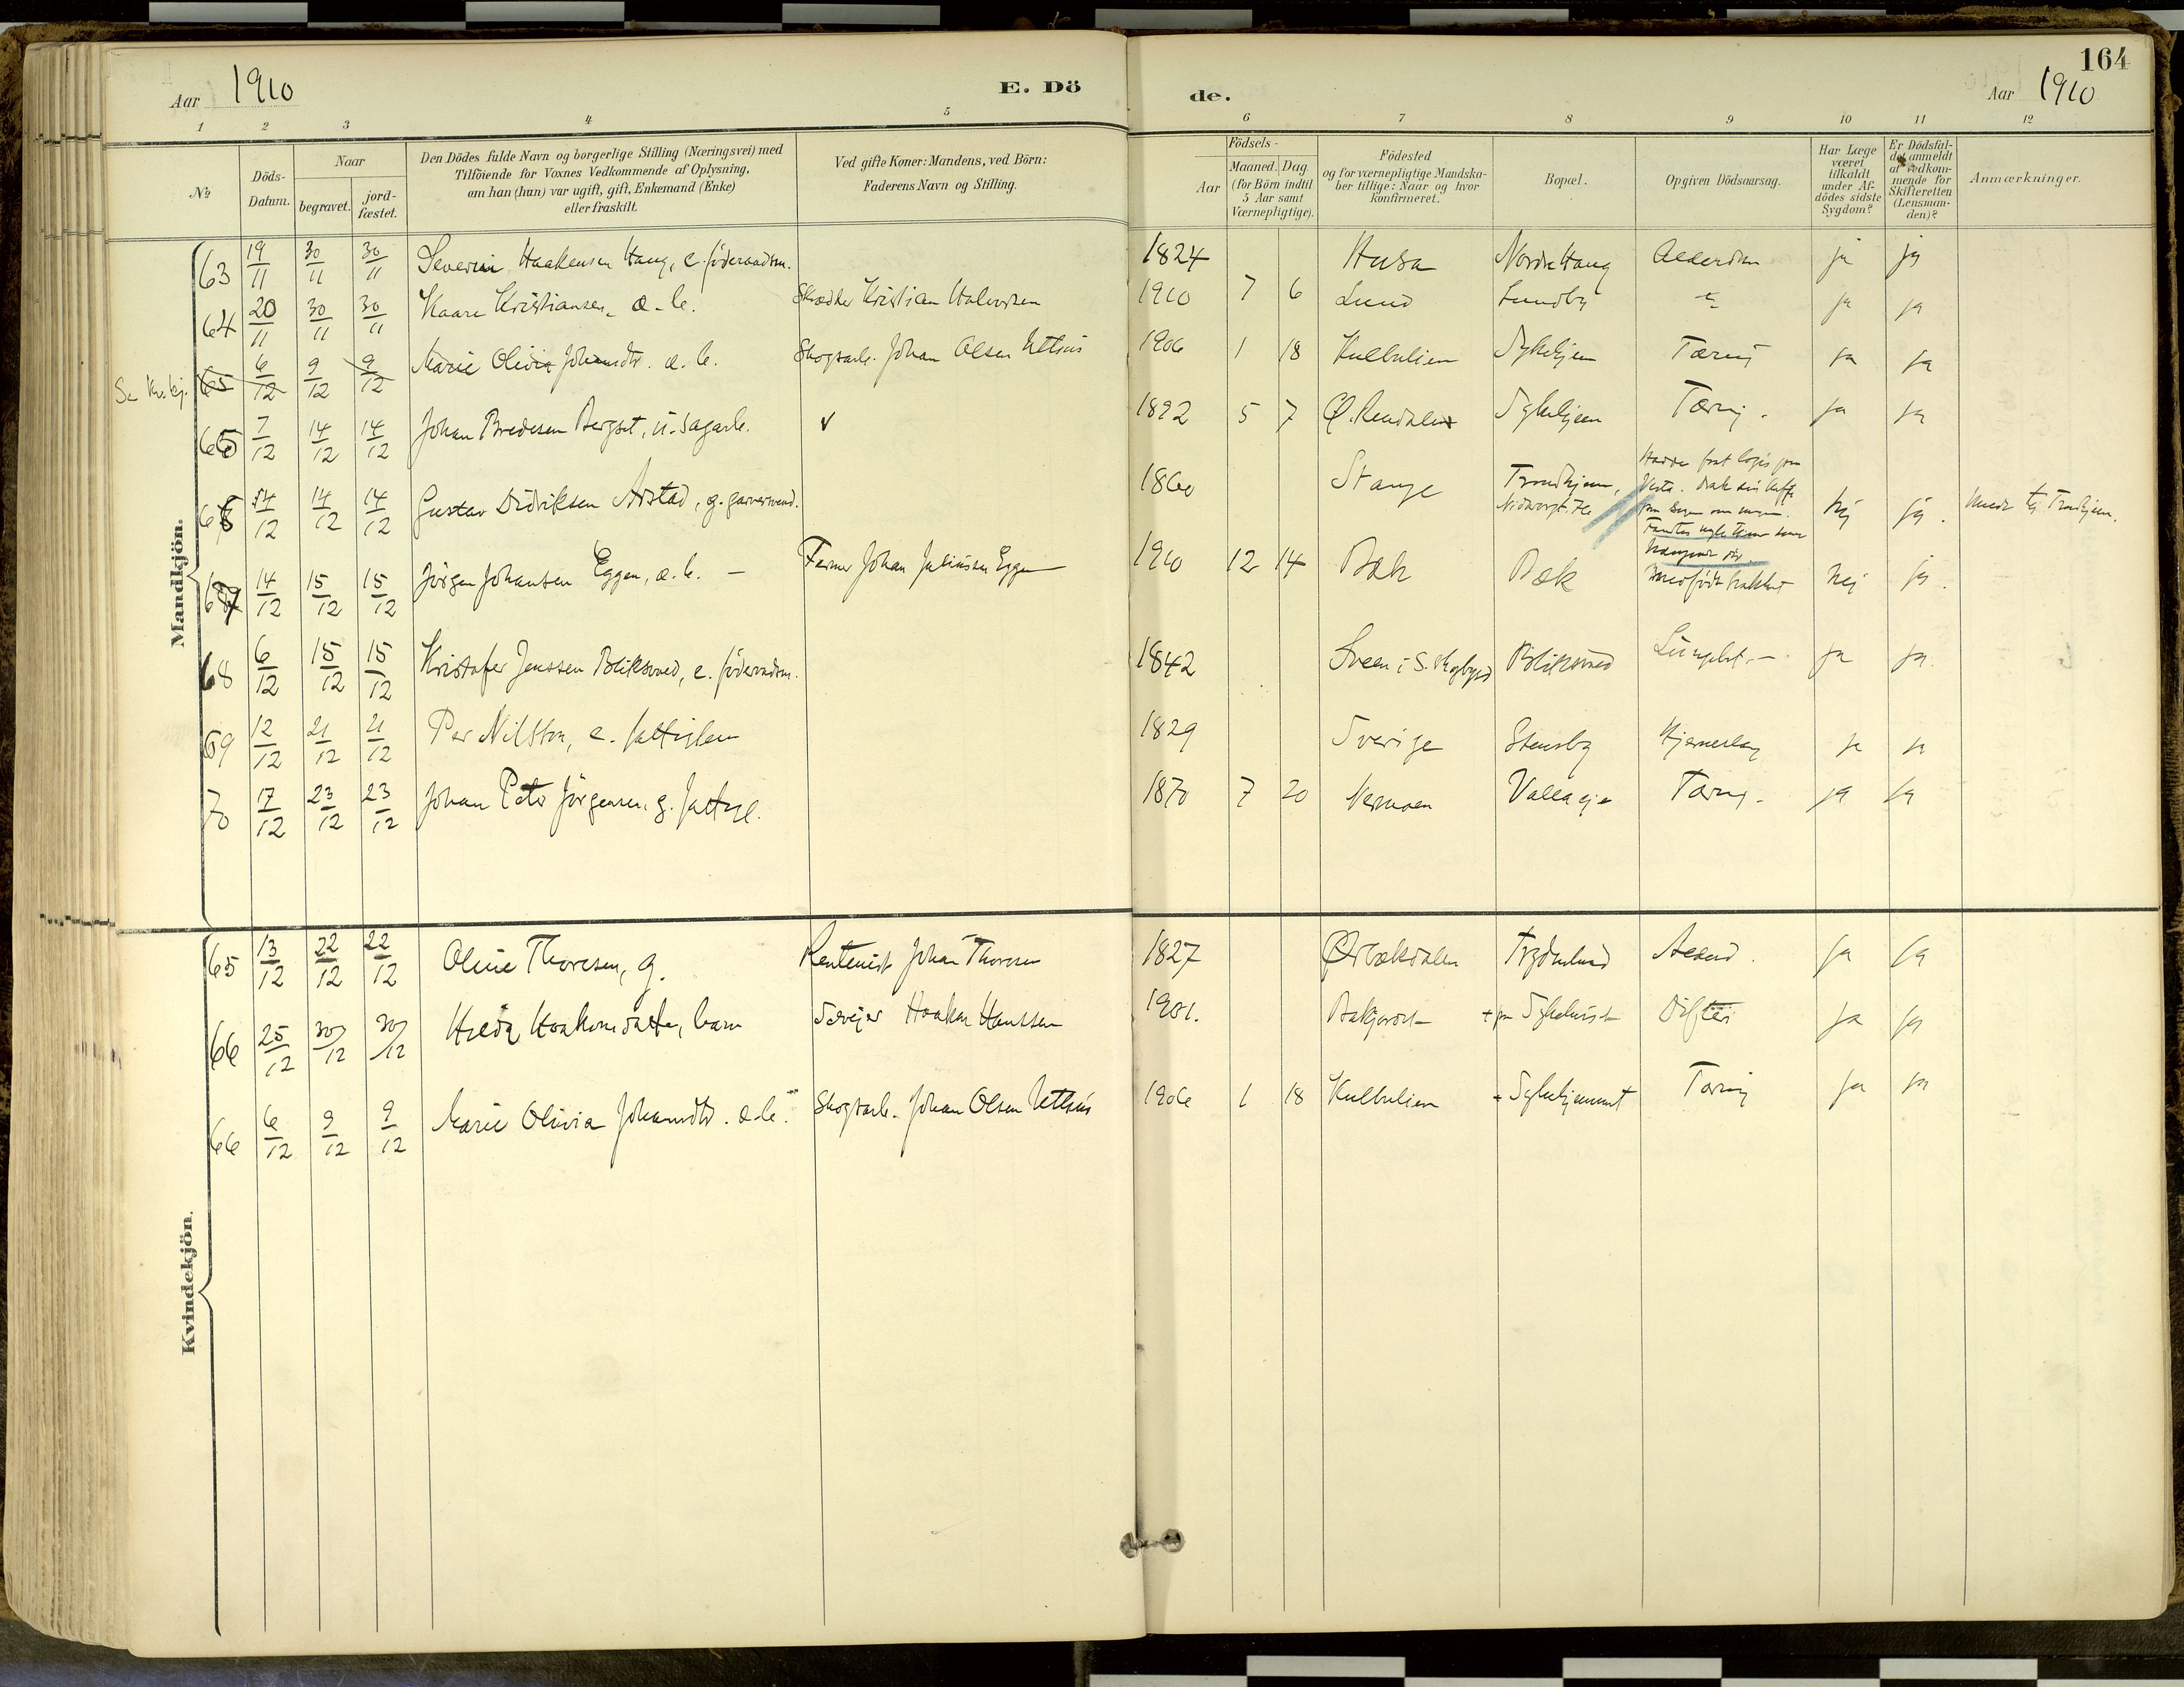 164
Aar 1910 E. Dö de. Aar 1910
1 2 3 4 5 6 7 8 9 10 11 12
No
Döds-
Datum.
Naar
begravet.
jord-
fæstet.
Den Dödes fulde Navn og borgerlige Stilling (Næringsvei) med
Tilföiende for Voxnes Vedkommende af Oplysning,
om han (hun) var ugift, gift, Enkemand (Enke)
eller fraskilt.
Ved gifte Koner: Mandens, ved Börn:
Faderens Navn og Stilling.
Födsels-
Aar
Maaned. Dag.
(for Börn indtil
5 Aar samt
Værnepligtige).
Födested
og for værnepligtige Mandska-
ber tillige: Naar og hvor
konfirmeret.
Bopæl.
Opgiven Dödsaarsag.
Har Læge
været
tilkaldt
under Af-
dödes sidste
Sygdom?
Er Dödsfal-
det anmeldt
af Vedkom-
mende for
Skifteretten
(Lensman-
den)?
Anmærkninger.
Mandkjön.
63 19/11 30/11 30/11 Severin Haakensen Haug, e. föderaadsm. 1824 Husa Nordre Haug Alderdom ja ja
64 20/11 30/11 30/11 Kaare Kristiansen, æ. b. Skrædder Kristian Halvorsen 1910 7 6 Lund Lundby ja ja
65 6/12 9/12 9/12 Marie Olivia Johansdtr. æ. b. Skogsarb. Johan Olsen 1906 1 18 Kulbulien Sykehjem Tæring ja ja
65 7/12 14/12 14/12 Johan Bredesen Bergset, u. sagarb. 1892 5 7 Ø. Rendalen Sykehjem Tæring. ja ja
66 14/12 14/12 Gustav Didriksen Årstad, g. garversvend. 1860 Stange Trondhjem, Nej ja. Trondhjem.
67 14/12 15/12 15/12 Jörgen Johansen Eggen, æ. b. — Farmer Johan Juliussen Eggen 1910 12 14 Bæk Bæk Medfödt Nej ja.
68 6/12 15/12 15/12 Kristofer Jenssen Bliksrud, e. föderaadsm. 1842 Sveen i S. Bliksrud ja ja.
69 12/12 21/12 21/12 Per Nilsson, e. fattiglem 1829 Sverige Stensby Hjerneslag ja ja
70 17/12 23/12 23/12 Johan Peter Jörgensen, g. fattigl. 1870 7 20 Nermoen Tæring. ja ja
Kvindekjön.
65 13/12 22/12 22/12 Oline Thoresen, g. Rentenist Johan Thoresen 1827 Ørbækdalen ja ja
66 25/12 30/12 30/12 Hilda Haakonsdatter, barn Haaken Hanssen 1901. Sykehuset Difteri ja ja
66 6/12 9/12 9/12 Marie Olivia Johansdtr. æ. b. Skogsarb. Johan Olsen 1906 1 18 Kulbulien Sykehjemmet Tæring ja ja